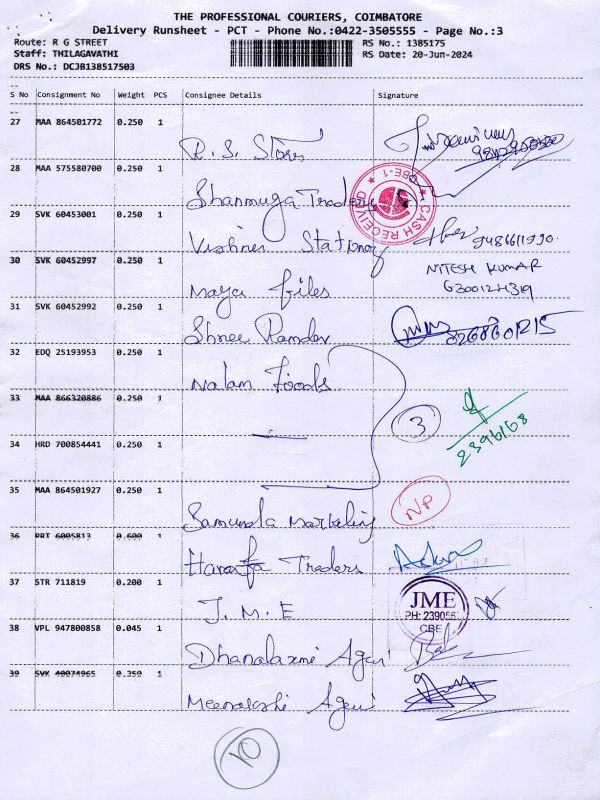 THE PROFESSIONAL COURIERS, COIMBATORE
Delivery Runsheet - PCT - Phone No.:0422-3505555 - Page No.:3
Route: R G STREET RS No.: 1385175
Staff: THILAGAVATHI RS Date: 20-Jun-2024
DRS No.: DCJB138517503
S No Consignment No Weight PCS Consignee Details Signature
27 MAA 864501772 0.250 1
R. S. Stores
28 MAA 575580700 0.250 1
Shanmuga Traders
CBE-1 CASH RECEIVED
29 SVK 60453001 0.250 1
Vishnu Stationary 9486611990
30 SVK 60452997 0.250 1 NITESH KUMAR
Maya Files
31 SVK 60452992 0.250 1
Shree Ramdev 8268601215
32 EDQ 25193953 0.250 1
Nalam Foods
33 MAA 866320886 0.250 1
3
2396168
34 HRD 700854441 0.250 1
35 MAA 864501927 0.250 1
NP
36 PRT 6005813 0.600 1
Traders
37 STR 711819 0.200 1
J. M. E
JME
PH: 239056
CBE
38 VPL 947800858 0.045 1
Dhanalaxmi
39 SVK 40074965 0.250 1
Meenakshi
10